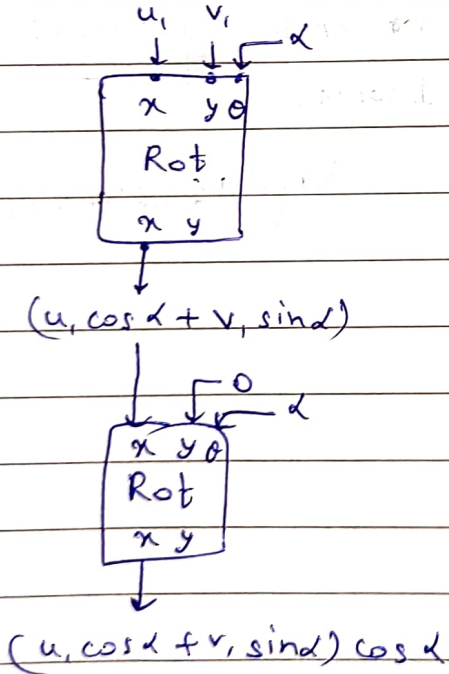 u₁ v₁ α
x y θ
Rot
x y
(u₁ cos α + v₁ sin α)
0
α
x y θ
Rot
x y
(u₁ cos α + v₁ sin α) cos α